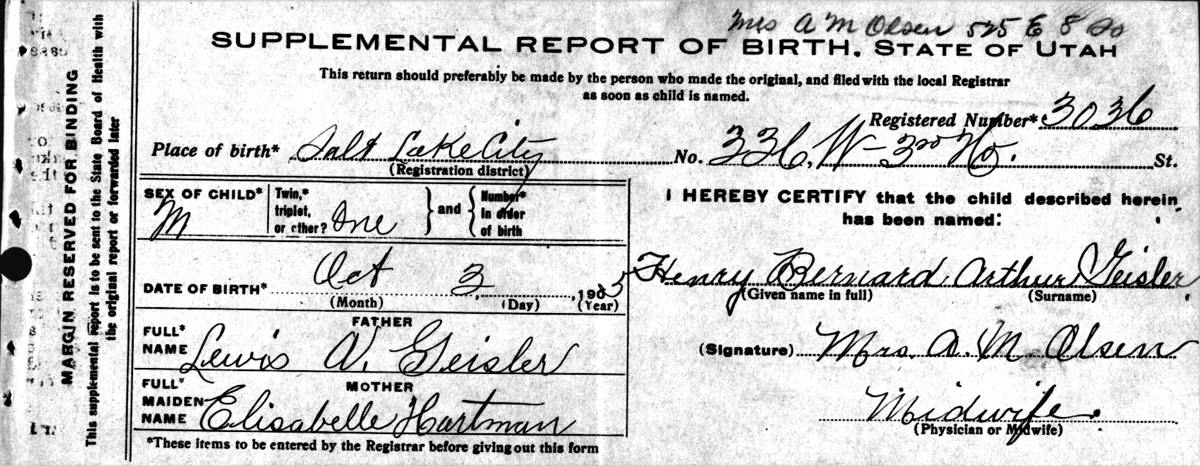 Mrs A M Olsen 525 E 8 So
SUPPLEMENTAL REPORT OF BIRTH, STATE OF UTAH
This return should preferably be made by the person who made the original, and filed with the local Registrar
as soon as child is named.
Registered Number* 3036
Place of birth* Salt Lake City No. 336, W - 3rd No. St.
(Registration district)
SEX OF CHILD* M
Twin,* triplet, or other? One
and
Number* in order of birth
DATE OF BIRTH* Oct 3, 1905
(Month) (Day) (Year)
FATHER
FULL* NAME Lewis V. Geisler
MOTHER
FULL* MAIDEN NAME Elisabelle Hartman
*These items to be entered by the Registrar before giving out this form
I HEREBY CERTIFY that the child described herein
has been named:
Henry Bernard Arthur Geisler
(Given name in full) (Surname)
(Signature) Mrs. A. M Olsen
Midwife.
(Physician or Midwife)
MARGIN RESERVED FOR BINDING
This supplemental report is to be sent to the State Board of Health with
the original report or forwarded later